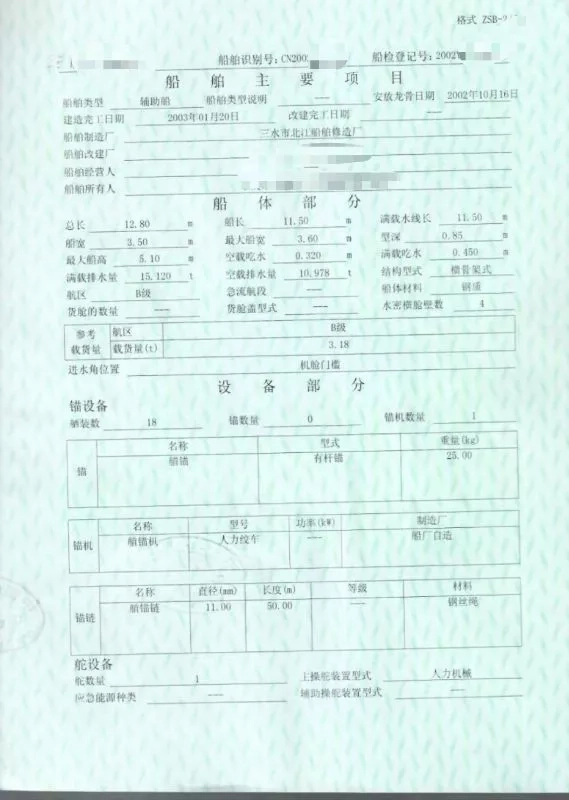 格式 ZSB-2
船舶识别号:CN200 船检登记号:2002
船舶主要项目
船舶类型 辅助船 船舶类型说明 --- 安放龙骨日期 2002年10月16日
建造完工日期 2003年01月20日 改建完工日期 ---
船舶制造厂 三水市北江船舶修造厂
船舶改建厂
船舶经营人
船舶所有人
船体部分
总长 12.80 m 船长 11.50 m 满载水线长 11.50 m
船宽 3.50 m 最大船宽 3.60 m 型深 0.85 m
最大船高 5.10 m 空载吃水 0.320 m 满载吃水 0.450 m
满载排水量 15.120 t 空载排水量 10.978 t 结构型式 横骨架式
航区 B级 急流航段 --- 船体材料 钢质
货舱的数量 --- 货舱盖型式 --- 水密横舱壁数 4
参考载货量 航区 B级
载货量(t) 3.18
进水角位置 机舱门槛
设备部分
锚设备
舾装数 18 锚数量 0 锚机数量 1
锚 名称 型式 重量(kg)
艏锚 有杆锚 25.00
锚机 名称 型号 功率(kW) 制造厂
艏锚机 人力绞车 --- 船厂自造
锚链 名称 直径(mm) 长度(m) 等级 材料
艏锚链 11.00 50.00 --- 钢丝绳
舵设备
舵数量 1 主操舵装置型式 人力机械
应急能源种类 --- 辅助操舵装置型式 ---